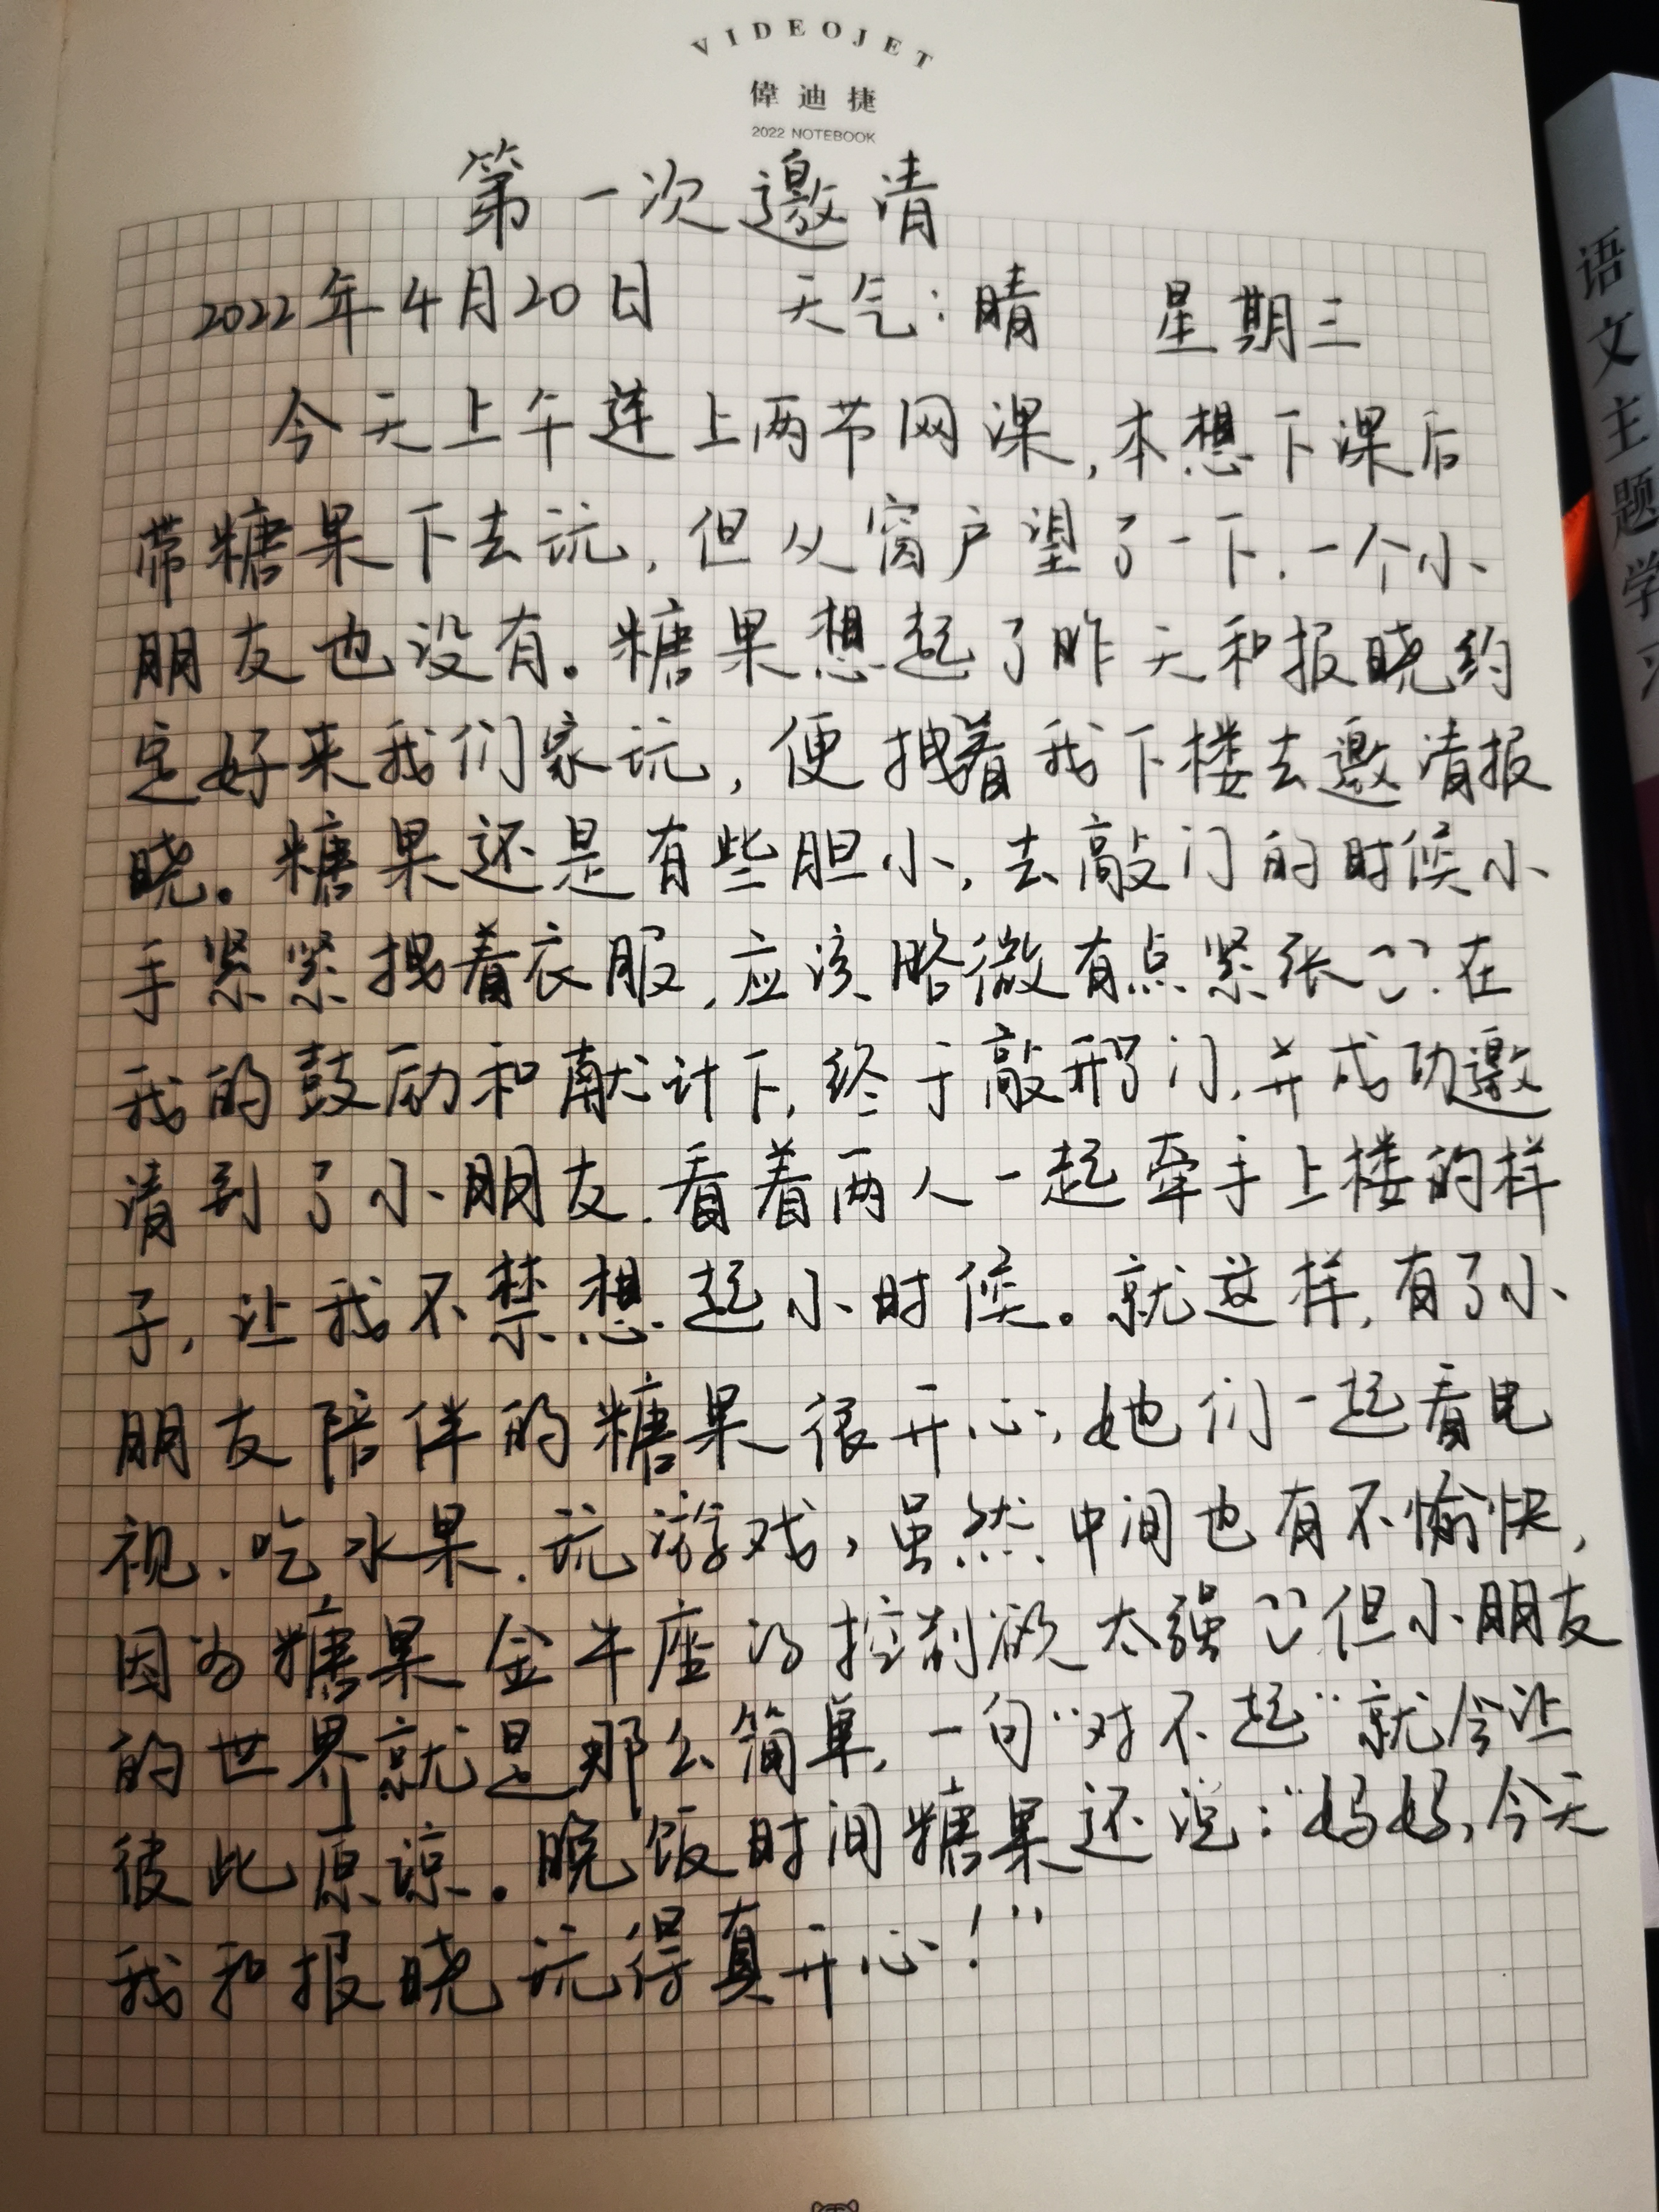 VIDEOJET
偉迪捷
2022 NOTEBOOK
第一次邀请
2022年4月20日 天气：晴 星期三
今天上午连上两节网课，本想下课后
带糖果下去玩，但从窗户望了一下，一个小
朋友也没有。糖果想起了昨天和报晓约
定好来我们家玩，便拽着我下楼去邀请报
晓。糖果还是有些胆小，去敲门的时候小
手紧紧拽着衣服，应该略微有点紧张，在
我的鼓励和献计下，终于敲开了门，并成功邀
请到了小朋友，看着两人一起牵手上楼的样
子，让我不禁想起小时候。就这样，有了小
朋友陪伴的糖果很开心，她们一起看电
视、吃水果、玩游戏，虽然中间也有不愉快，
因为糖果金牛座的控制欲太强但小朋友
的世界就是那么简单，一句“对不起”就会让
彼此原谅。晚饭时间糖果还说：“妈妈，今天
我和报晓玩得真开心！”
语文主题学习